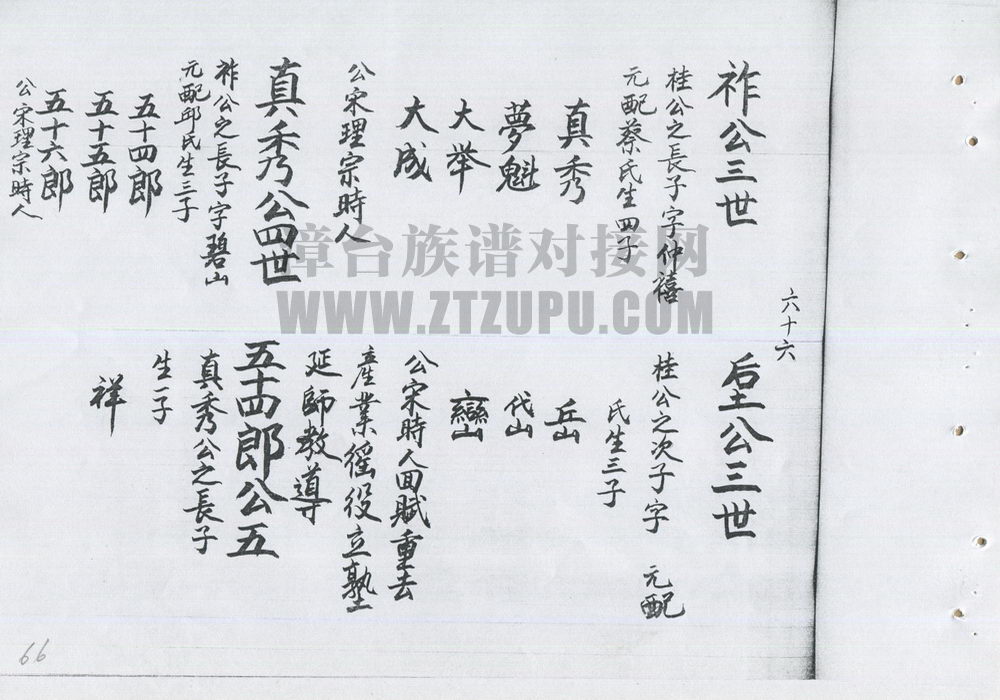 六十六
祚公三世
桂公之長子字仲禧
元配蔡氏生四子
真秀
夢魁
大举
大成
公宋理宗時人
真秀公四世
祚公之長子字碧山
元配邱氏生三子
五十四郎
五十五郎
五十六郎
公宋理宗時人
垕公三世
桂公之次子字 元配
氏生三子
丘山
岱山
巒山
公宋時人田賦重去
產業徭役立塾
延師教導
五十四郎公五
真秀公之長子
生一子
祥
66
章台族谱对接网
WWW.ZTZUPU.COM